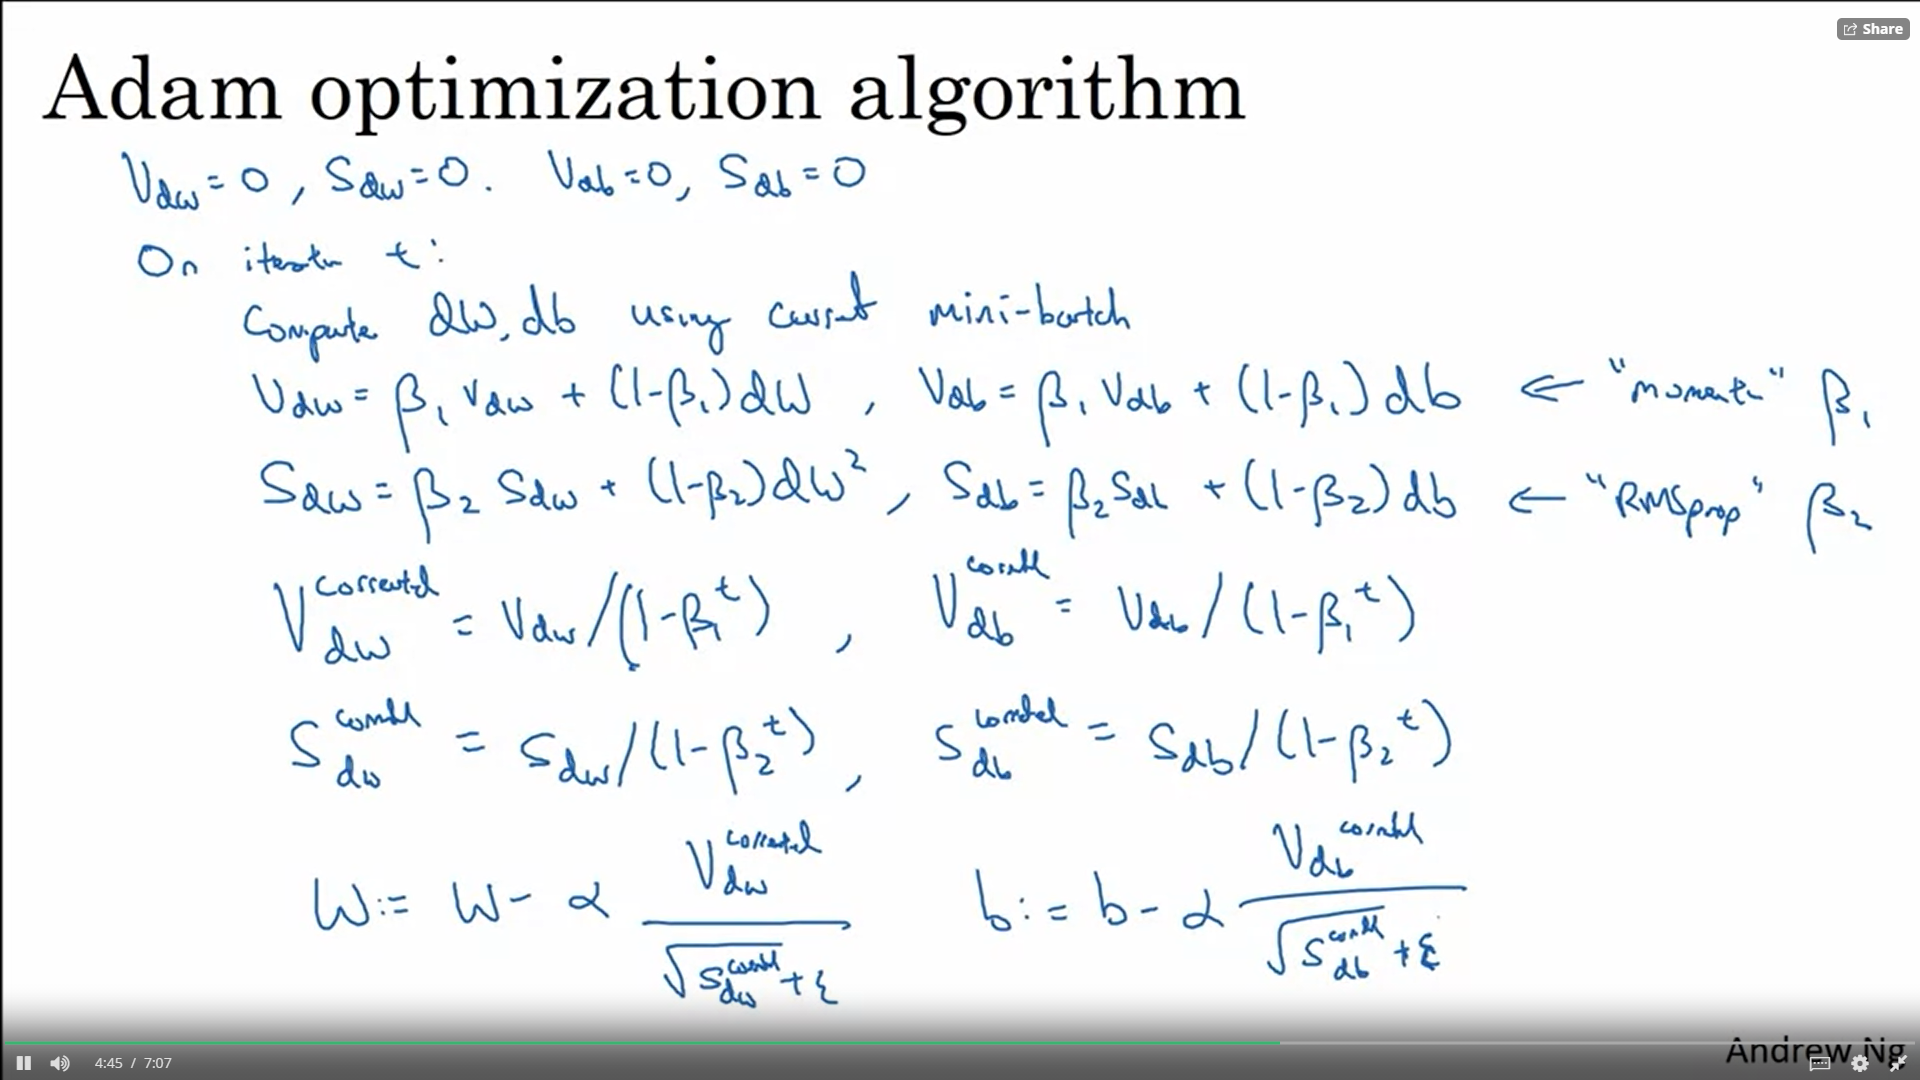 Share
Adam optimization algorithm
V_dw = 0, S_dw = 0. V_db = 0, S_db = 0
On iteratn t:
Compute dW, db using current mini-batch
V_dw = β₁ V_dw + (1-β₁) dW , V_db = β₁ V_db + (1-β₁) db ← "moment" β₁
S_dw = β₂ S_dw + (1-β₂) dW² , S_db = β₂ S_db + (1-β₂) db ← "RMSprop" β₂
V_dw^corrected = V_dw / (1-β₁^t) , V_db^corrected = V_db / (1-β₁^t)
S_dw^corrected = S_dw / (1-β₂^t) , S_db^corrected = S_db / (1-β₂^t)
W := W - α V_dw^corrected / (√S_dw^corrected + ε) b := b - α V_db^corrected / (√S_db^corrected + ε)
Andrew Ng
4:45 / 7:07